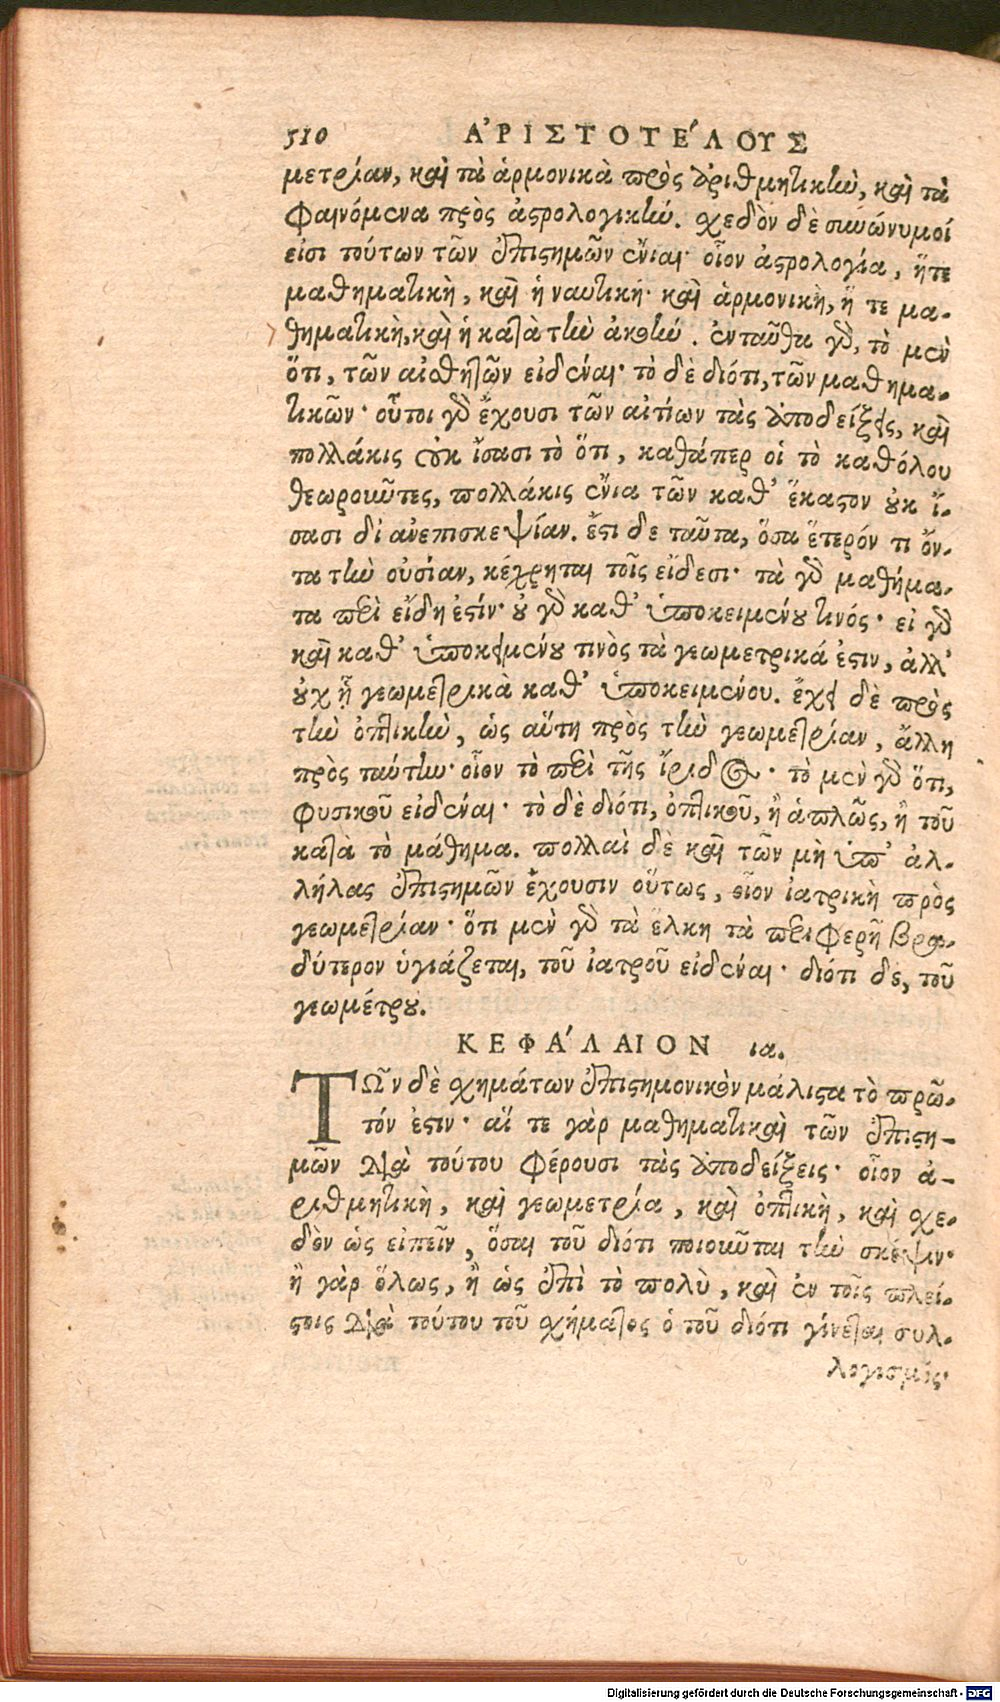 510 ἈΡΙΣΤΟΤΈΛΟΥΣ
μετρίαν, καὶ τὰ ἁρμονικὰ πρὸς ἀριθμητικὴν, καὶ τὰ
φαινόμενα πρὸς ἀστρολογικήν. σχεδὸν δὲ συνώνυμοί
εἰσι τούτων τῶν ἐπιστημῶν ἔνιαι· οἷον ἀστρολογία, ἥτε
μαθηματικὴ, καὶ ἡ ναυτική· καὶ ἁρμονικὴ, ἥ τε μα-
θηματικὴ, καὶ ἡ κατὰ τὴν ἀκοήν. ἐνταῦθα γὰρ, τὸ μὲν
ὅτι, τῶν αἰσθητῶν εἰδέναι· τὸ δὲ διότι, τῶν μαθημα-
τικῶν· οὗτοι γὰρ ἔχουσι τῶν αἰτίων τὰς ἀποδείξεις, καὶ
πολλάκις οὐκ ἴσασι τὸ ὅτι, καθάπερ οἱ τὸ καθόλου
θεωροῦντες, πολλάκις ἔνια τῶν καθ' ἕκαστον οὐκ ἴ-
σασι δι' ἀνεπισκεψίαν. ἔστι δε ταῦτα, ὅσα ἕτερόν τι ὄν-
τα τὴν οὐσίαν, κέχρηται τοῖς εἴδεσι· τὰ γὰρ μαθήμα-
τα περὶ εἴδη ἐστίν· οὐ γὰρ καθ' ὑποκειμένου τινός· εἰ γὰρ
καὶ καθ' ὑποκειμένου τινὸς τὰ γεωμετρικά ἐστιν, ἀλλ'
οὐχ ᾗ γεωμετρικὰ καθ' ὑποκειμένου. ἔχει δὲ πρὸς
τὴν ὀπτικὴν, ὡς αὕτη πρὸς τὴν γεωμετρίαν, ἄλλη
πρὸς ταύτην· οἷον τὸ περὶ τῆς ἴριδος· τὸ μὲν γὰρ ὅτι,
φυσικοῦ εἰδέναι· τὸ δὲ διότι, ὀπτικοῦ, ἢ ἁπλῶς, ἢ τοῦ
κατὰ τὸ μάθημα. πολλαὶ δὲ καὶ τῶν μὴ ὑπ' ἀλ-
λήλας ἐπιστημῶν ἔχουσιν οὕτως, οἷον ἰατρικὴ πρὸς
γεωμετρίαν· ὅτι μὲν γὰρ τὰ ἕλκη τὰ περιφερῆ βρα-
δύτερον ὑγιάζεται, τοῦ ἰατροῦ εἰδέναι· διότι δὲ, τοῦ
γεωμέτρου.
ΚΕΦΆΛΑΙΟΝ ια.
ΤΩ͂ν δὲ σχημάτων ἐπιστημονικὸν μάλιστα τὸ πρῶ-
τόν ἐστιν· αἵ τε γὰρ μαθηματικαὶ τῶν ἐπιστη-
μῶν διὰ τούτου φέρουσι τὰς ἀποδείξεις· οἷον ἀ-
ριθμητικὴ, καὶ γεωμετρία, καὶ ὀπτικὴ, καὶ σχε-
δὸν ὡς εἰπεῖν, ὅσαι τοῦ διότι ποιοῦνται τὴν σκέψιν·
ἢ γὰρ ὅλως, ἢ ὡς ἐπὶ τὸ πολὺ, καὶ ἐν τοῖς πλεί-
στοις διὰ τούτου τοῦ σχήματος ὁ τοῦ διότι γίνεται συλ-
λογισμός·
Digitalisierung gefördert durch die Deutsche Forschungsgemeinschaft - DFG